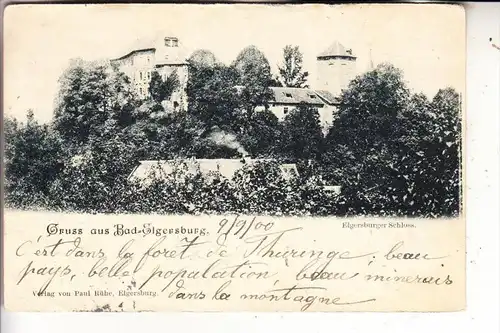 Gruss aus Bad-Elgersburg. 9/9/00
Elgersburger Schloss.
C'est dans la forêt de Thuringe, beau
pays, belle population, beau minerais
dans la montagne
Verlag von Paul Rühe, Elgersburg.